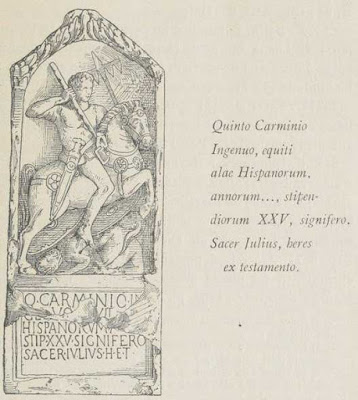 Q·CARMINIO·IN
HISPANORVM
STIP·XXV·SIGNIFERO
SACER·IVLIVS·H·E·T
Quinto Carminio
Ingenuo, equiti
alae Hispanorum,
annorum..., stipen-
diorum XXV, signifero.
Sacer Julius, heres
ex testamento.